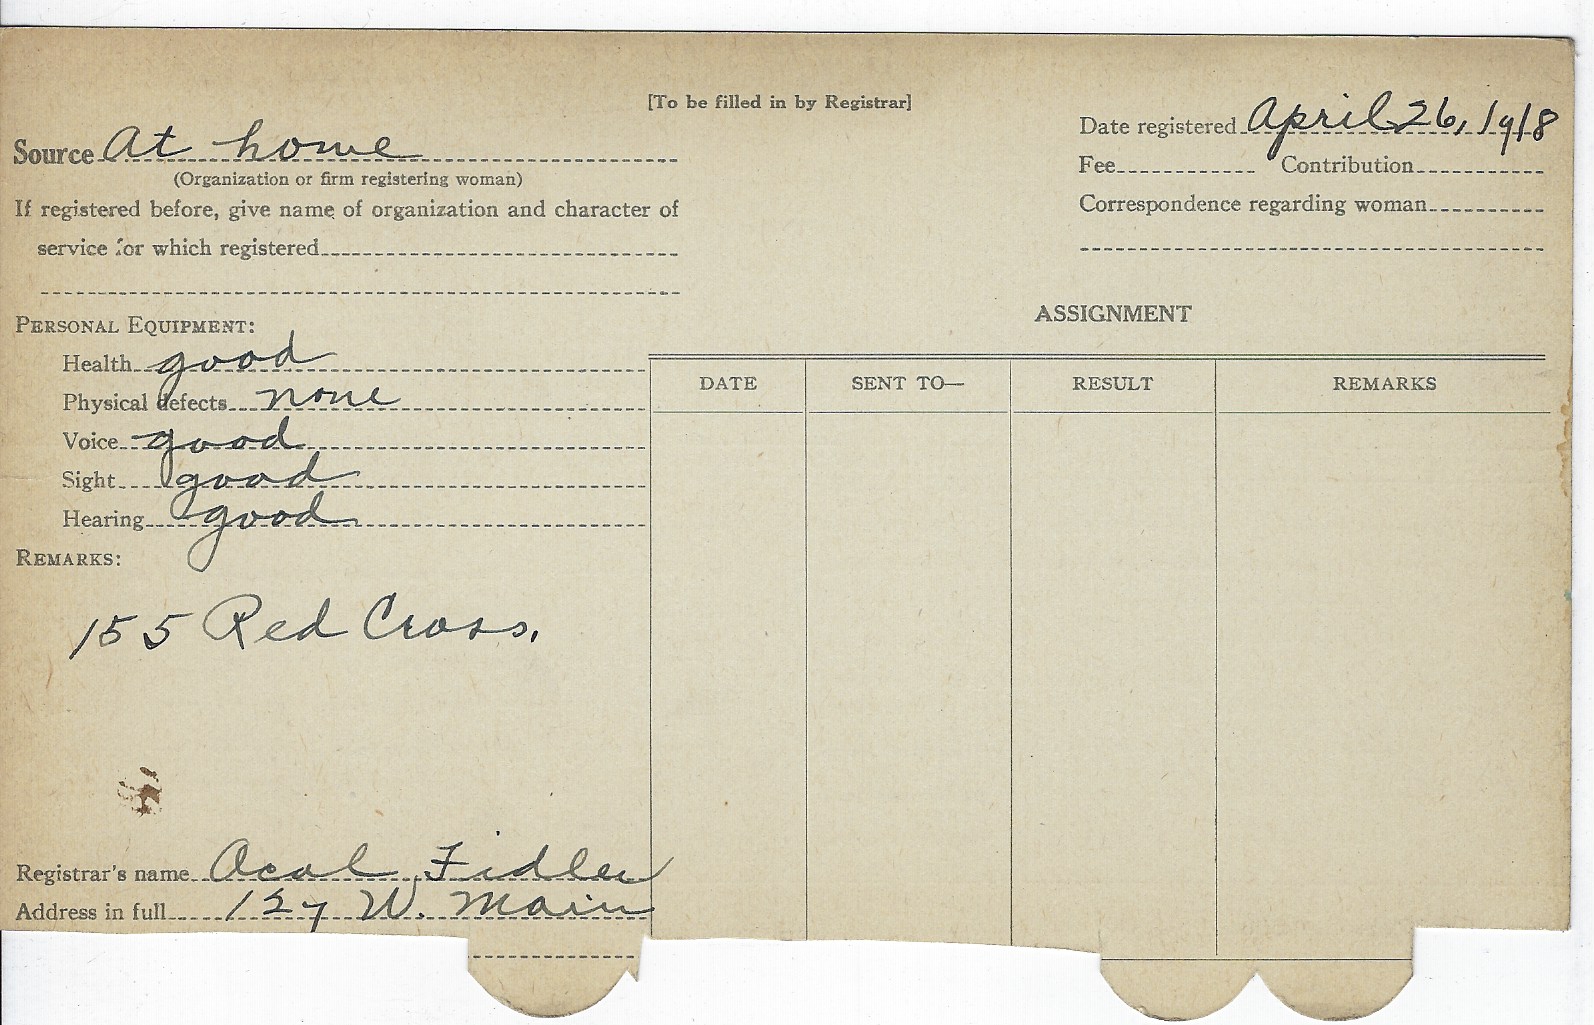 [To be filled in by Registrar]
Source At home
(Organization or firm registering woman)
If registered before, give name of organization and character of
service for which registered
Date registered April 26, 1918
Fee Contribution
Correspondence regarding woman
PERSONAL EQUIPMENT:
Health good
Physical defects none
Voice good
Sight good
Hearing good
REMARKS:
155 Red Cross.
ASSIGNMENT
DATE SENT TO— RESULT REMARKS
Registrar's name Acal Fidler
Address in full 127 W. Main